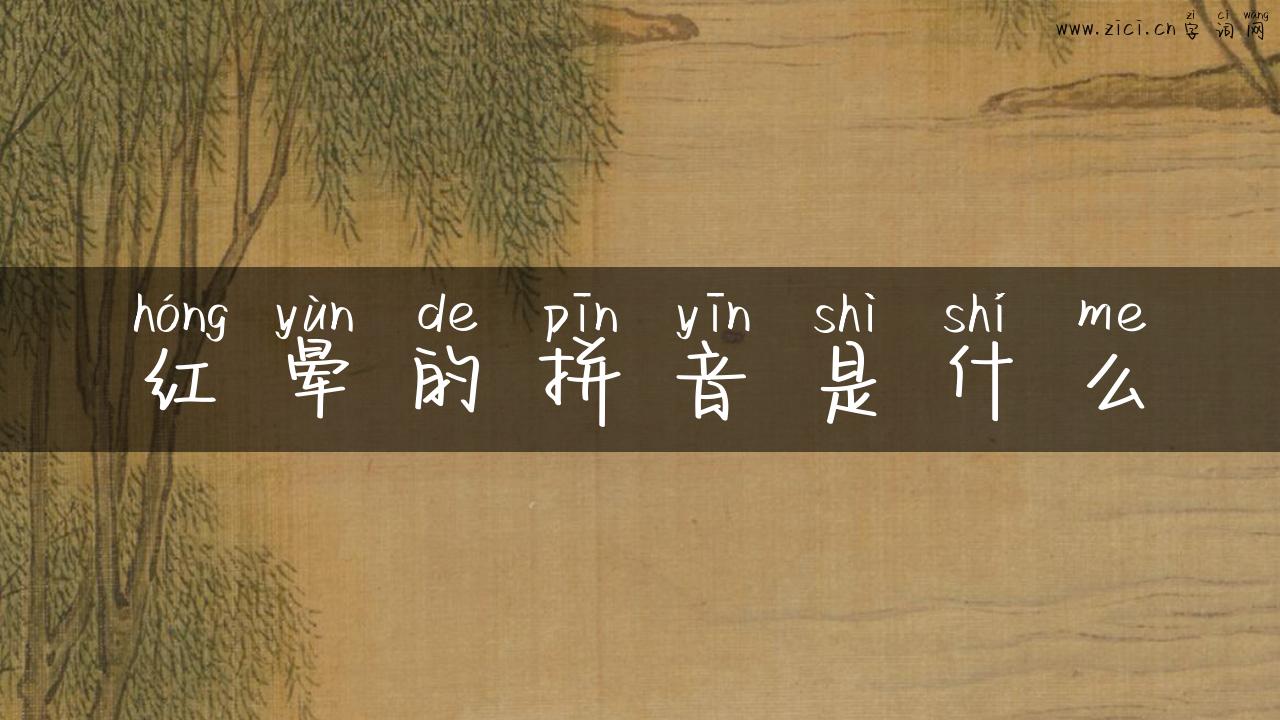 zì cí wǎng
www.zici.cn 字 词 网
hóng yùn de pīn yīn shì shí me
红 晕 的 拼 音 是 什 么